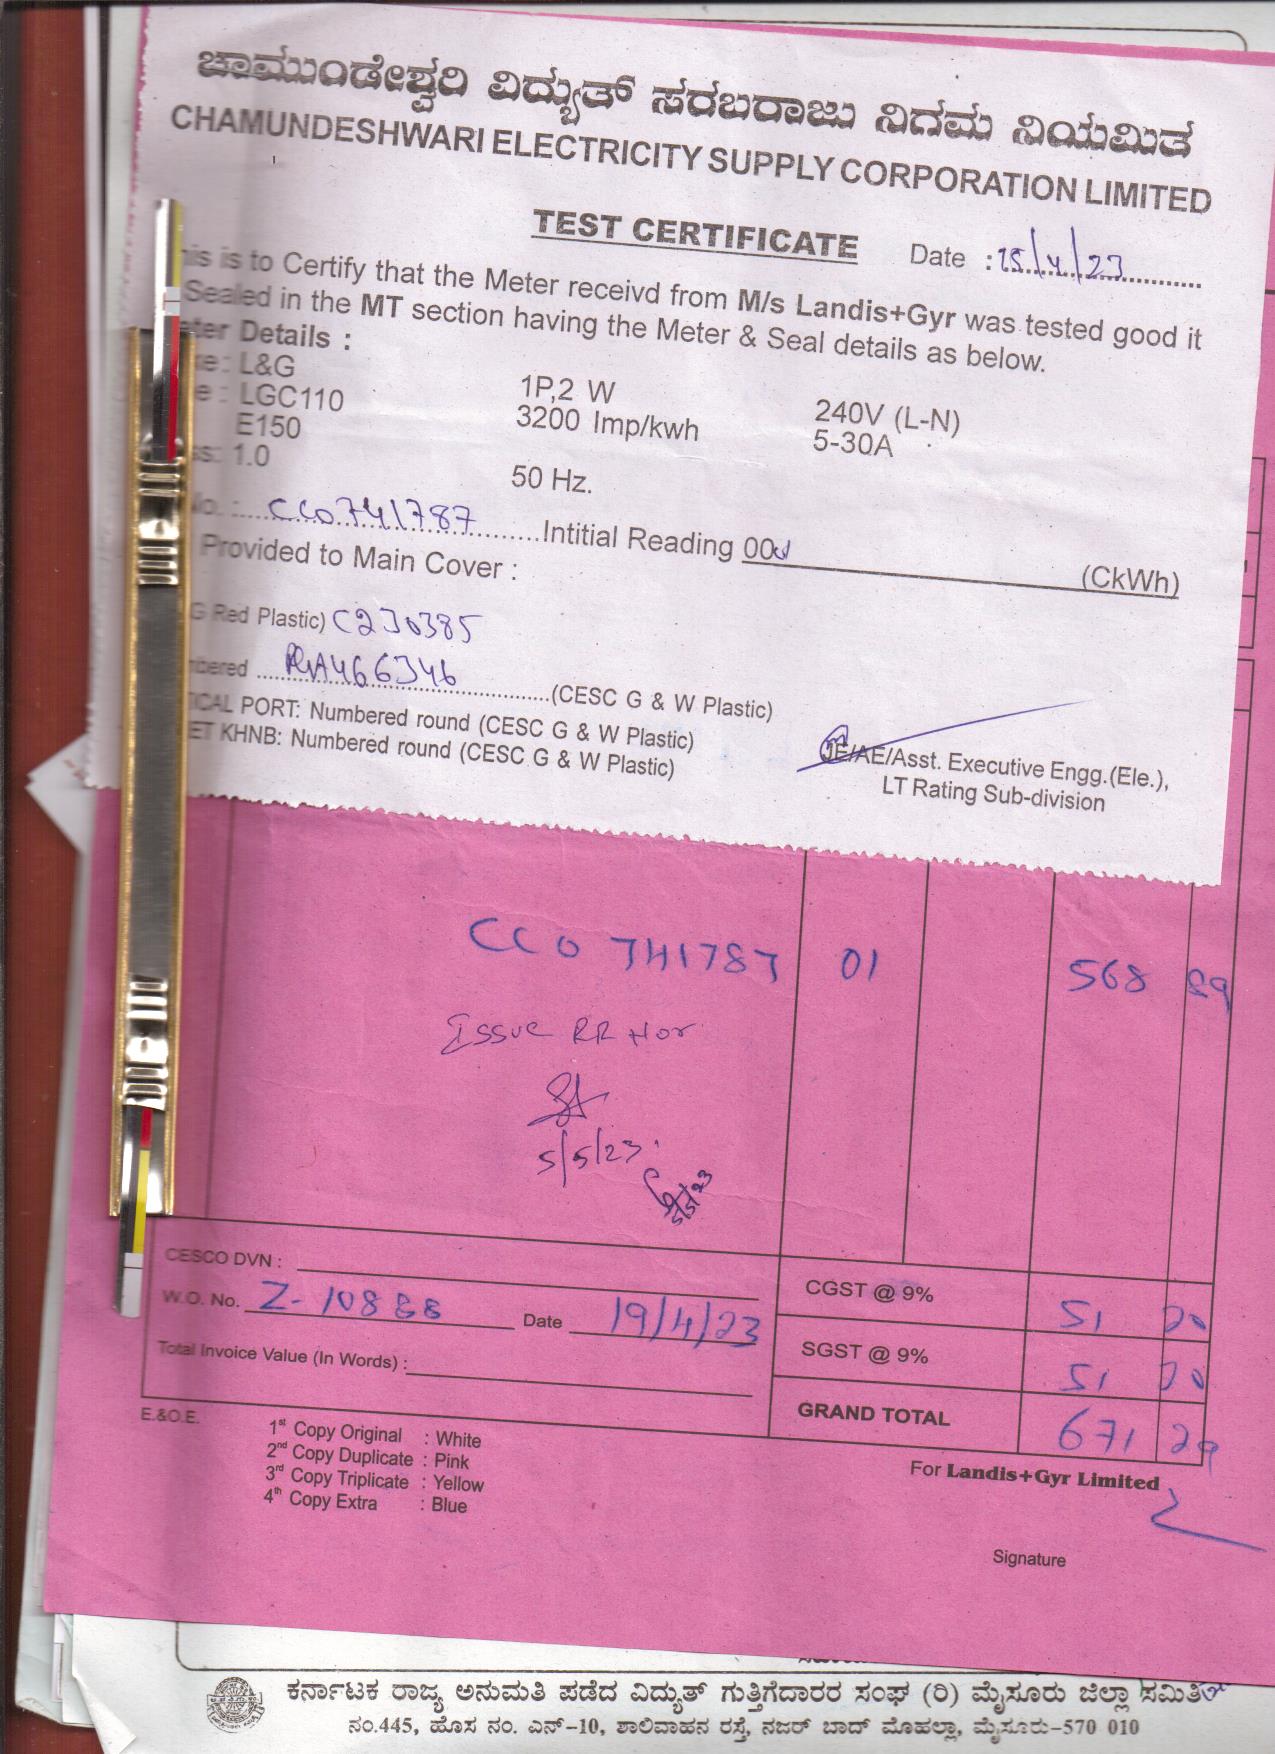 ಚಾಮುಂಡೇಶ್ವರಿ ವಿದ್ಯುತ್ ಸರಬರಾಜು ನಿಗಮ ನಿಯಮಿತ
CHAMUNDESHWARI ELECTRICITY SUPPLY CORPORATION LIMITED
TEST CERTIFICATE Date : 15/4/23
is to Certify that the Meter receivd from M/s Landis+Gyr was tested good it
Sealed in the MT section having the Meter & Seal details as below.
Details :
: L&G 1P,2 W 240V (L-N)
: LGC110 3200 Imp/kwh 5-30A
E150
: 1.0 50 Hz.
CC0741787 Intitial Reading 00 (CkWh)
Provided to Main Cover :
Red Plastic) C230385
466346 (CESC G & W Plastic)
PORT: Numbered round (CESC G & W Plastic)
KHNB: Numbered round (CESC G & W Plastic)
JE/AE/Asst. Executive Engg.(Ele.),
LT Rating Sub-division
CC0 741787 01 568 89
Issue RR Nor
5/5/23
5/5/23
CESCO DVN :
CGST @ 9% 51 20
W.O. No. Z-10888 Date 19/4/23
SGST @ 9% 51 20
Total Invoice Value (In Words) :
GRAND TOTAL 671 29
E.&O.E.
1st Copy Original : White
2nd Copy Duplicate : Pink
3rd Copy Triplicate : Yellow
4th Copy Extra : Blue
For Landis+Gyr Limited
Signature
ಕರ್ನಾಟಕ ರಾಜ್ಯ ಅನುಮತಿ ಪಡೆದ ವಿದ್ಯುತ್ ಗುತ್ತಿಗೆದಾರರ ಸಂಘ (ರಿ) ಮೈಸೂರು ಜಿಲ್ಲಾ ಸಮಿತಿ
ನಂ.445, ಹೊಸ ನಂ. ಎನ್-10, ಶಾಲಿವಾಹನ ರಸ್ತೆ, ನಜರ್ ಬಾದ್ ಮೊಹಲ್ಲಾ, ಮೈಸೂರು-570 010